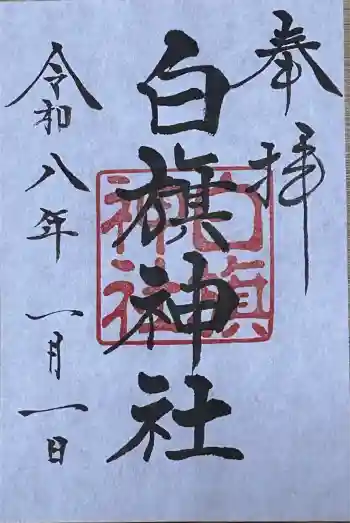 奉拝
白旗神社
白旗
神社
令和八年一月一日